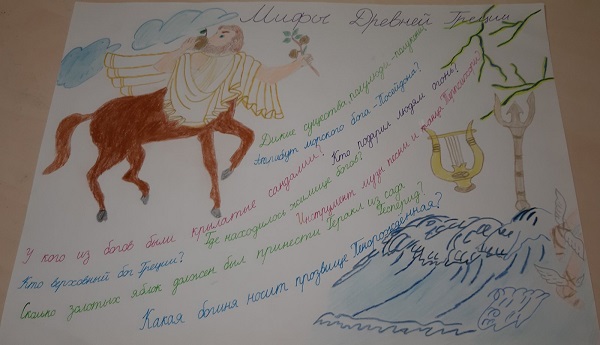 Мифы Древней Греции
Дикие существа, полулюди-полукони?
Атрибут морского бога - Посейдона?
Кто подарил людям огонь?
Инструмент музы песни и танца Терпсихоры?
У кого из богов были крылатые сандалии?
Где находилось жилище богов?
Кто верховный бог Греции?
Сколько золотых яблок должен был принести Геракл из сада Гесперид?
Какая богиня носит прозвище Пенорожденная?